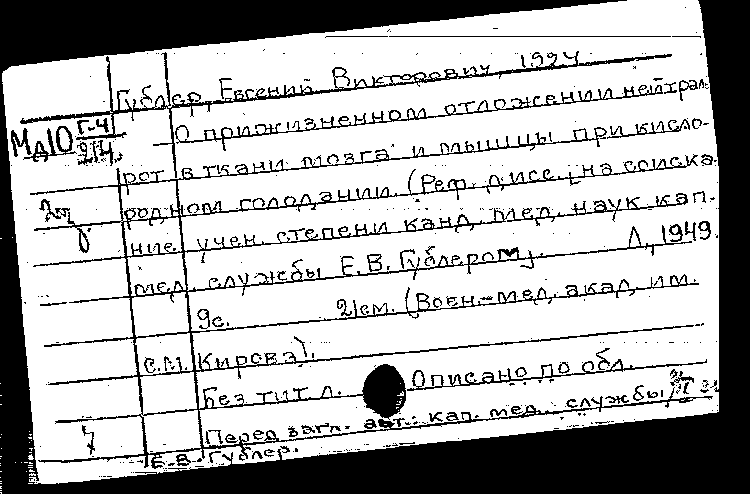 Гублер, Евгений Викторович, 1924
Мд10 Г-4
214.
О прижизненном отложении нейтрал.
рот в ткани мозга и мышцы при кисло-
родном голодании. (Реф. дисс. на соиска
ние учен. степени канд. мед. наук кап.
мед. службы Е.В. Гублером). Л., 1949.
9с. 21см. (Воен.-мед. акад. им.
С.М. Кирова).
Без тит. л. Описано по обл.
7 Перед загл. авт.: кап. мед. службы
Е.В. Гублер.